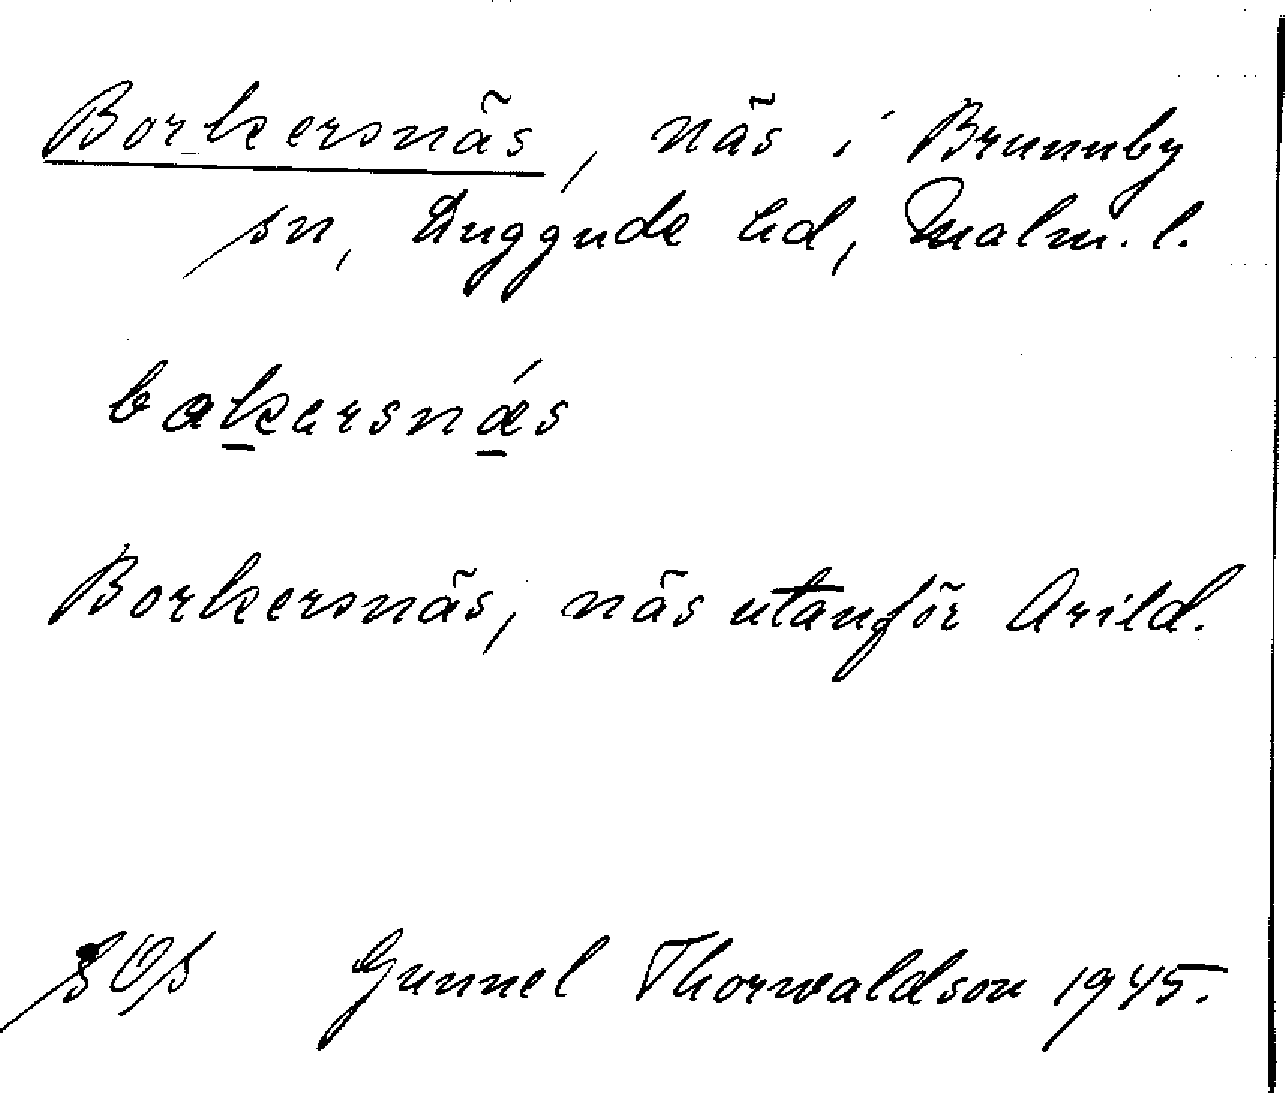 Borkersnäs, näs i Brunnby
sn, Luggude hd, Malm. l.
bakersnǽs
Borkersnäs, näs utanför Arild.
SOS Gunnel Thorwaldson 1945.